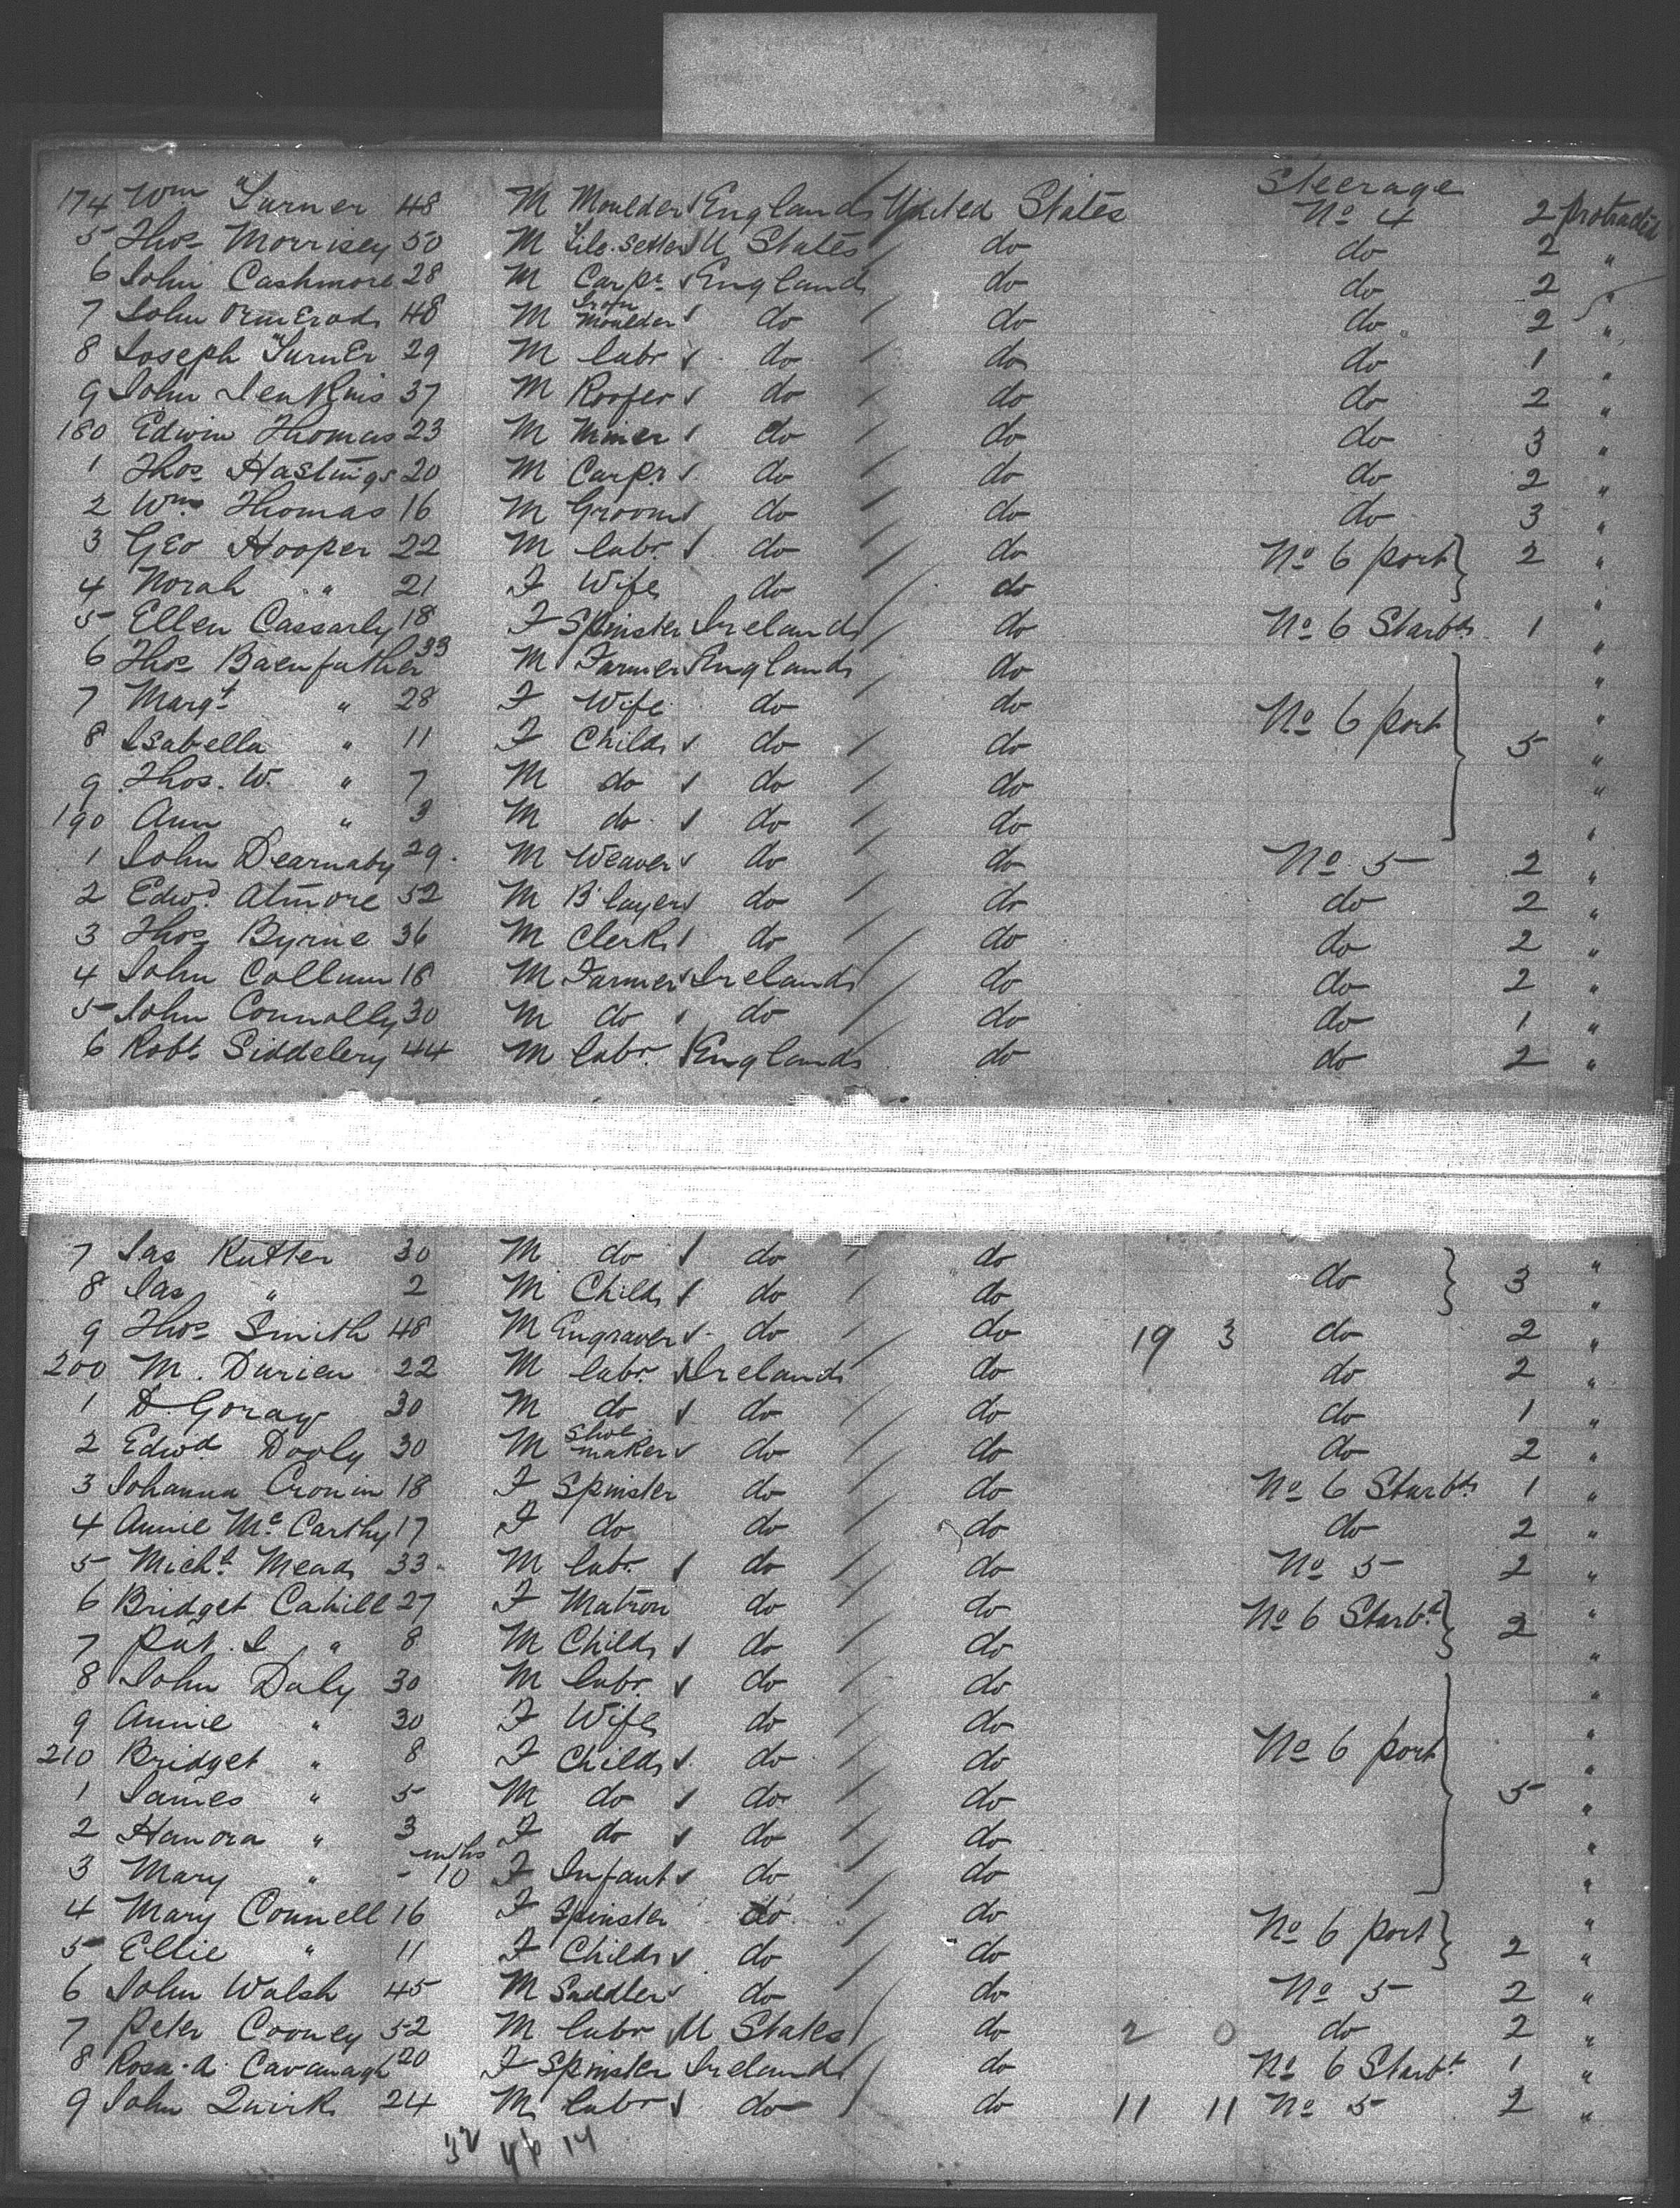 Steerage
174 Wm Turner 48 M Moulder England United States No 4 2 protracted
5 Thos Morrisey 50 M Tile. Setter U States do do 2 "
6 John Cashmore 28 M Carpr England do do 2 "
7 John Ormerod 48 M Iron Moulder do do do 2 "
8 Joseph Turner 29 M labr do do do 1 "
9 John Jenkins 37 M Roofer do do do 2 "
180 Edwin Thomas 23 M Miner do do do 3 "
1 Thos Hastings 20 M Carpr do do do 2 "
2 Wm Thomas 16 M Groom do do do 3 "
3 Geo Hooper 22 M labr. do do No 6 port } 2 "
4 Norah " 21 F Wife do do "
5 Ellen Cassarly 18 F Spinster Ireland do No 6 Starbd 1 "
6 Thos Baenfather 33 M Farmer England do "
7 Margt " 28 F Wife do do No 6 port } "
8 Isabella " 11 F Child do do 5 "
9 Thos. W. " 7 M do do do "
190 Ann " 3 M do do do "
1 John Dearnaby 29. M Weaver do do No. 5 2 "
2 Edwd Atmore 52 M B'layer do do do 2 "
3 Thos Byrne 36 M Clerk do do do 2 "
4 John Collum 18 M Farmer Ireland do do 2 "
5 John Connolly 30 M do do do do 1 "
6 Robt Siddelery 44 M labr. England do do 2 "
7 Jas Rutter 30 M do do do do } 3 "
8 Jas " 2 M Child do do "
9 Thos Smith 48 M Engraver do do 19 3 do 2 "
200 M. Durien 22 M labr. Ireland do do 2 "
1 D. Goray 30 M do do do do 1 "
2 Edwd Dooly 30 M Shoe maker do do do 2 "
3 Johanna Cronin 18 F Spinster do do No 6 Starbd 1 "
4 Annie Mc Carthy 17 F do do do do 2 "
5 Michl Mead 33 M labr. do do No 5 2 "
6 Bridget Cahill 27 F Matron do do No 6 Starbd } 2 "
7 Pat. J " 8 M Child do do "
8 John Daly 30 M labr. do do "
9 Annie " 30 F Wife do do "
210 Bridget " 8 F Child do do No 6 port } "
1 James " 5 M do do do 5 "
2 Hanora " 3 F do do do "
3 Mary " - 10 mths F Infant do do "
4 Mary Connell 16 F Spinster do do No 6 port } "
5 Ellie " 11 F Child do do 2 "
6 John Walsh 45 M Saddler do do No 5 2 "
7 Peter Cooney 52 M labr U States do 2 0 do 2 "
8 Rosa. A. Cavanagh 20 F Spinster Ireland do No 6 Starbt 1 "
9 John Quirk 24 M labr do do 11 11 No 5 2 "
32 46 14